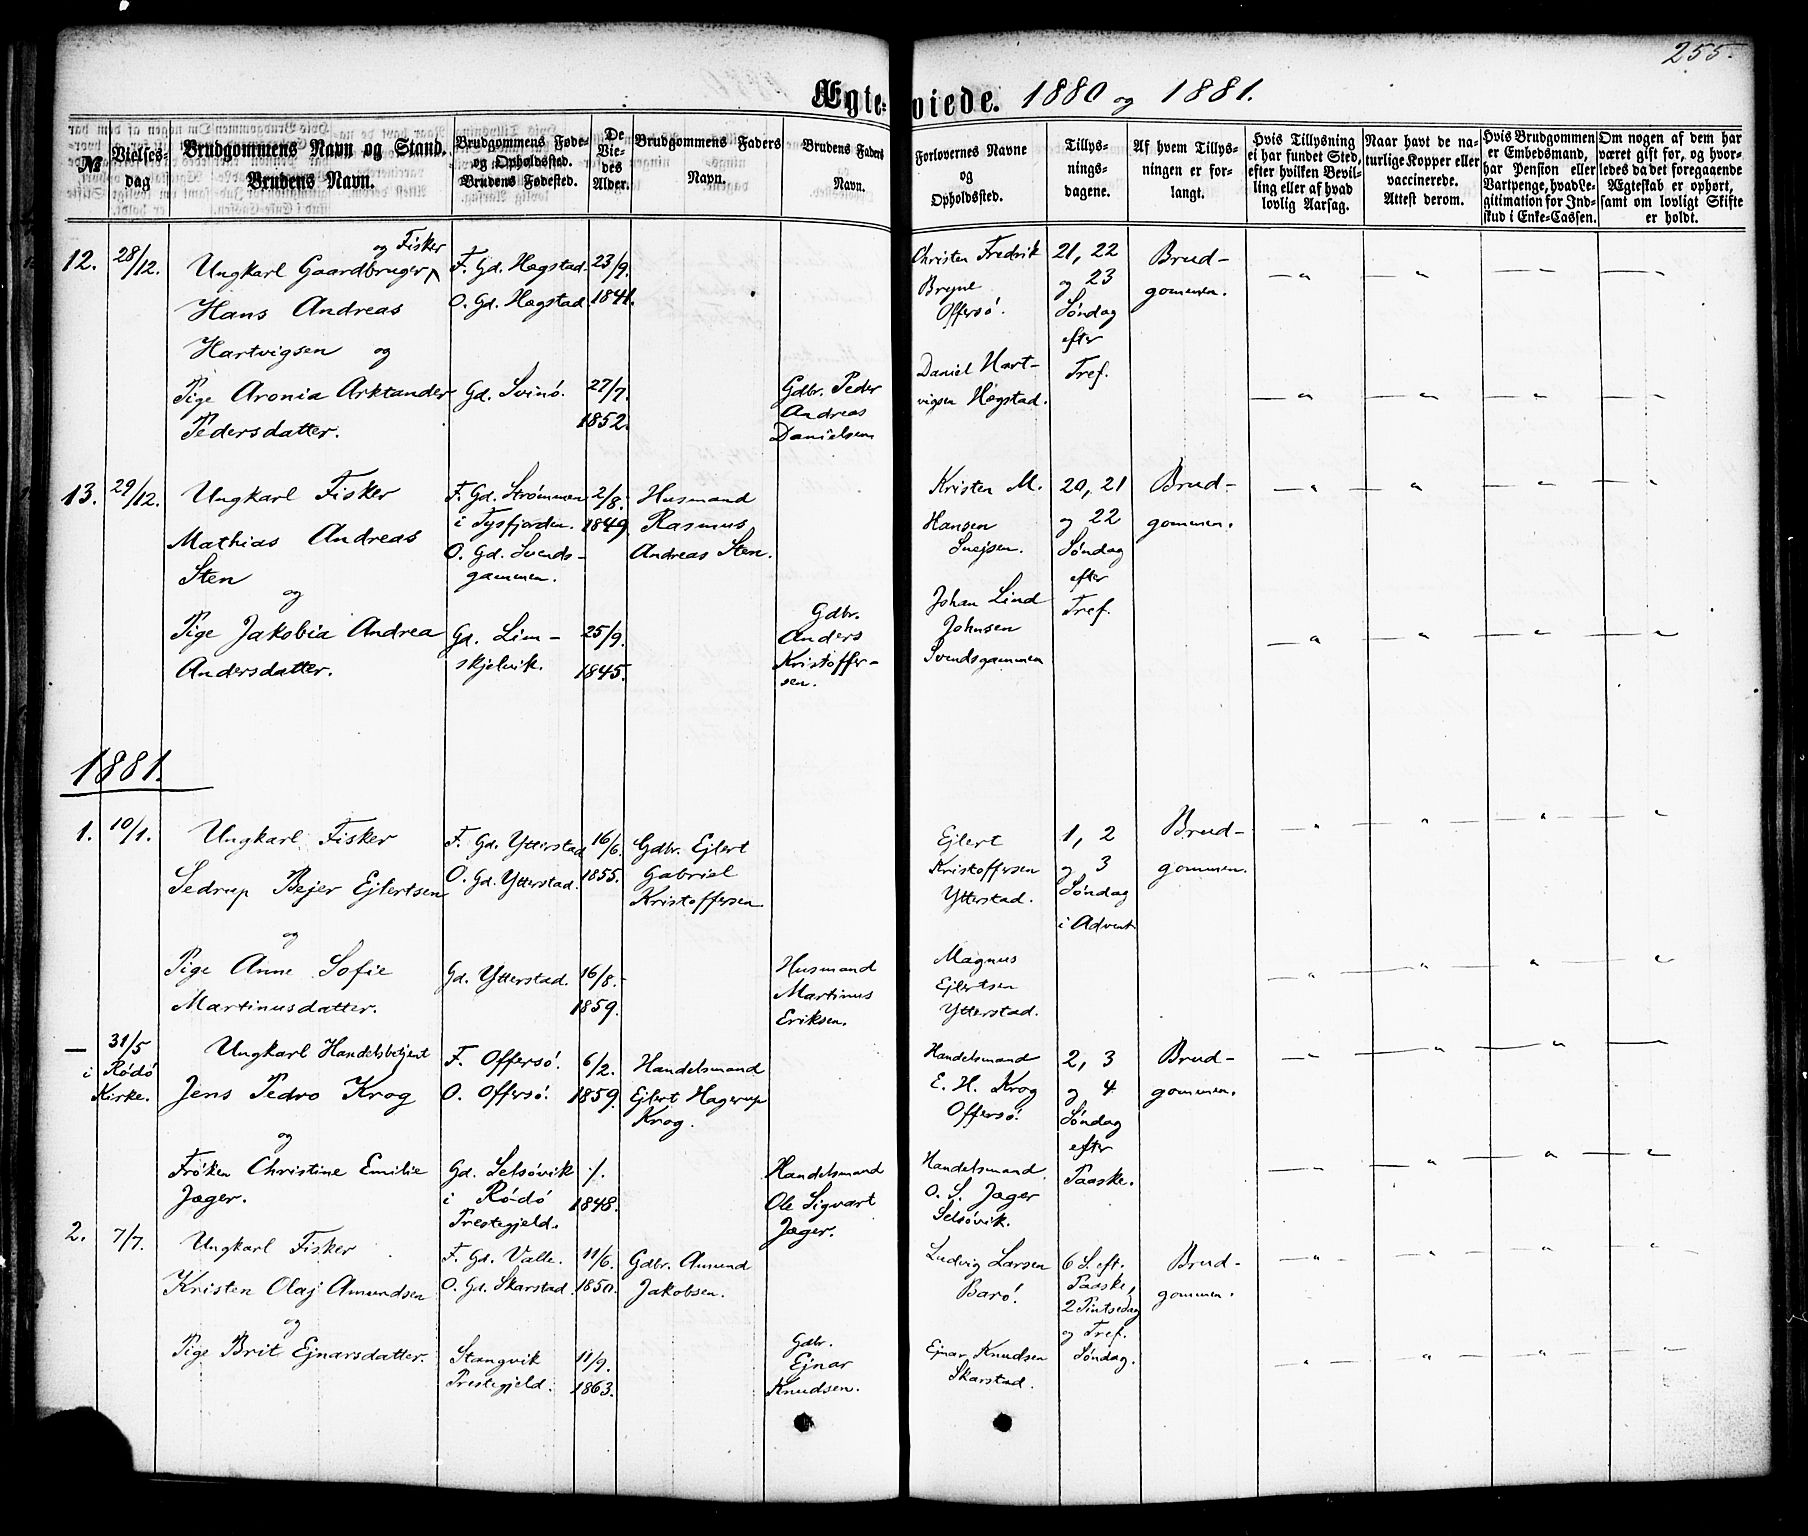 255.
Ægteviede. 1880 og 1881.
№
Vielses-
dag
Brudgommens Navn og Stand.
Brudens Navn.
Brudgommens Føde-
og Opholdssted.
Brudens Fødested.
De
Vie-
des
Alder.
Brudgommens Faders
Navn.
Brudens Faders
Navn.
Forlovernes Navne
og
Opholdssted.
Tillys-
nings-
dagene.
Af hvem Tillys-
ningen er for-
langt.
Hvis Tillysning
ei har fundet Sted,
efter hvilken Bevil-
ling eller af hvad
lovlig Aarsag.
Naar havt de na-
turlige Kopper eller
vaccinerede.
Attest derom.
Hvis Brudgommen
er Embedsmand,
har Pension eller
Vartpenge, hvad Le-
gitimation for Ind-
skud i Enke-Cassen.
Om nogen af dem har
været gift før, og hvor-
ledes da det foregaaende
Ægteskab er ophørt,
samt om lovligt Skifte
er holdt.
12.
28/12.
og Fisker
Ungkarl Gaardbruger
Hans Andreas
Hartvigsen og
Pige Aronia Arktander
Pedersdatter.
F. Gd. Hægstad.
O. Gd. Hægstad.
Gd. Svinö.
23/9.
1841.
27/7.
1852.
Gdbr. Peder
Andreas
Danielsen
Christen Fredrik
Bryne
Offersö.
Daniel Hart-
vigsen Hægstad.
21, 22
og 23
Søndag
efter
Tref.
Brud-
gommen.
13.
29/12.
Ungkarl Fisker
Mathias Andreas
Sten
og
Pige Jakobia Andrea
Andersdatter.
F. Gd. Strømmen
i Tysfjorden.
O. Gd. Svends-
gammen.
Gd. Lim-
skjelvik.
2/8.
1849.
25/9.
1845.
Husmand
Rasmus
Andreas Sten.
Gdbr.
Anders
Kristoffer-
sen.
Kristen M.
Hansen
Snejsen.
Johan Lind
Johnsen
Svendsgammen
20, 21
og 22
Søndag
efter
Tref.
Brud-
gommen.
1881.
1.
10/1.
Ungkarl Fisker
Sedrup Bejer Ejlertsen
og
Pige Anne Sofie
Martinusdatter.
F. Gd. Ytterstad
O. Gd. Ytterstad.
Gd. Ytterstad.
16/6.
1855.
16/8.
1859.
Gdbr. Ejlert
Gabriel
Kristoffersen.
Husmand
Martinus
Eriksen.
Ejlert
Kristoffersen
Ytterstad.
Magnus
Ejlertsen
Ytterstad.
1, 2
og 3
Søndag
i Advent
Brud-
gommen.
—
31/5
i Rödö
Kirke.
Ungkarl Handelsbetjent
Jens Pedro Krog
og
Frøken Christine Emilie
Jæger.
F. Offersö.
O. Offersö.
Gd. Selsövik
i Rödö
Prestegjeld.
6/2.
1859.
./.
1848.
Handelsmand
Ejlert Hagerup
Krog.
Handelsmand
Ole Sigvart
Jæger.
Handelsmand
E. H. Krog
Offersö.
Handelsmand
O. S. Jæger
Selsövik.
2, 3
og 4
Søndag
efter
Paaske.
Brud-
gommen.
2.
7/7.
Ungkarl Fisker
Kristen Olaj Amundsen
og
Pige Brit Ejnarsdatter.
F. Gd. Valle.
O. Gd. Skarstad.
Stangvik
Prestegjeld.
11/6.
1850.
11/9.
1863.
Gdbr. Amund
Jakobsen.
Gdbr.
Ejnar
Knudsen.
Ludvig Larsen
Barö.
Ejnar Knudsen
Skarstad.
6 S. eft.
Paaske,
2 Pintsedag
og Tref.
Søndag.
Brud-
gommen.